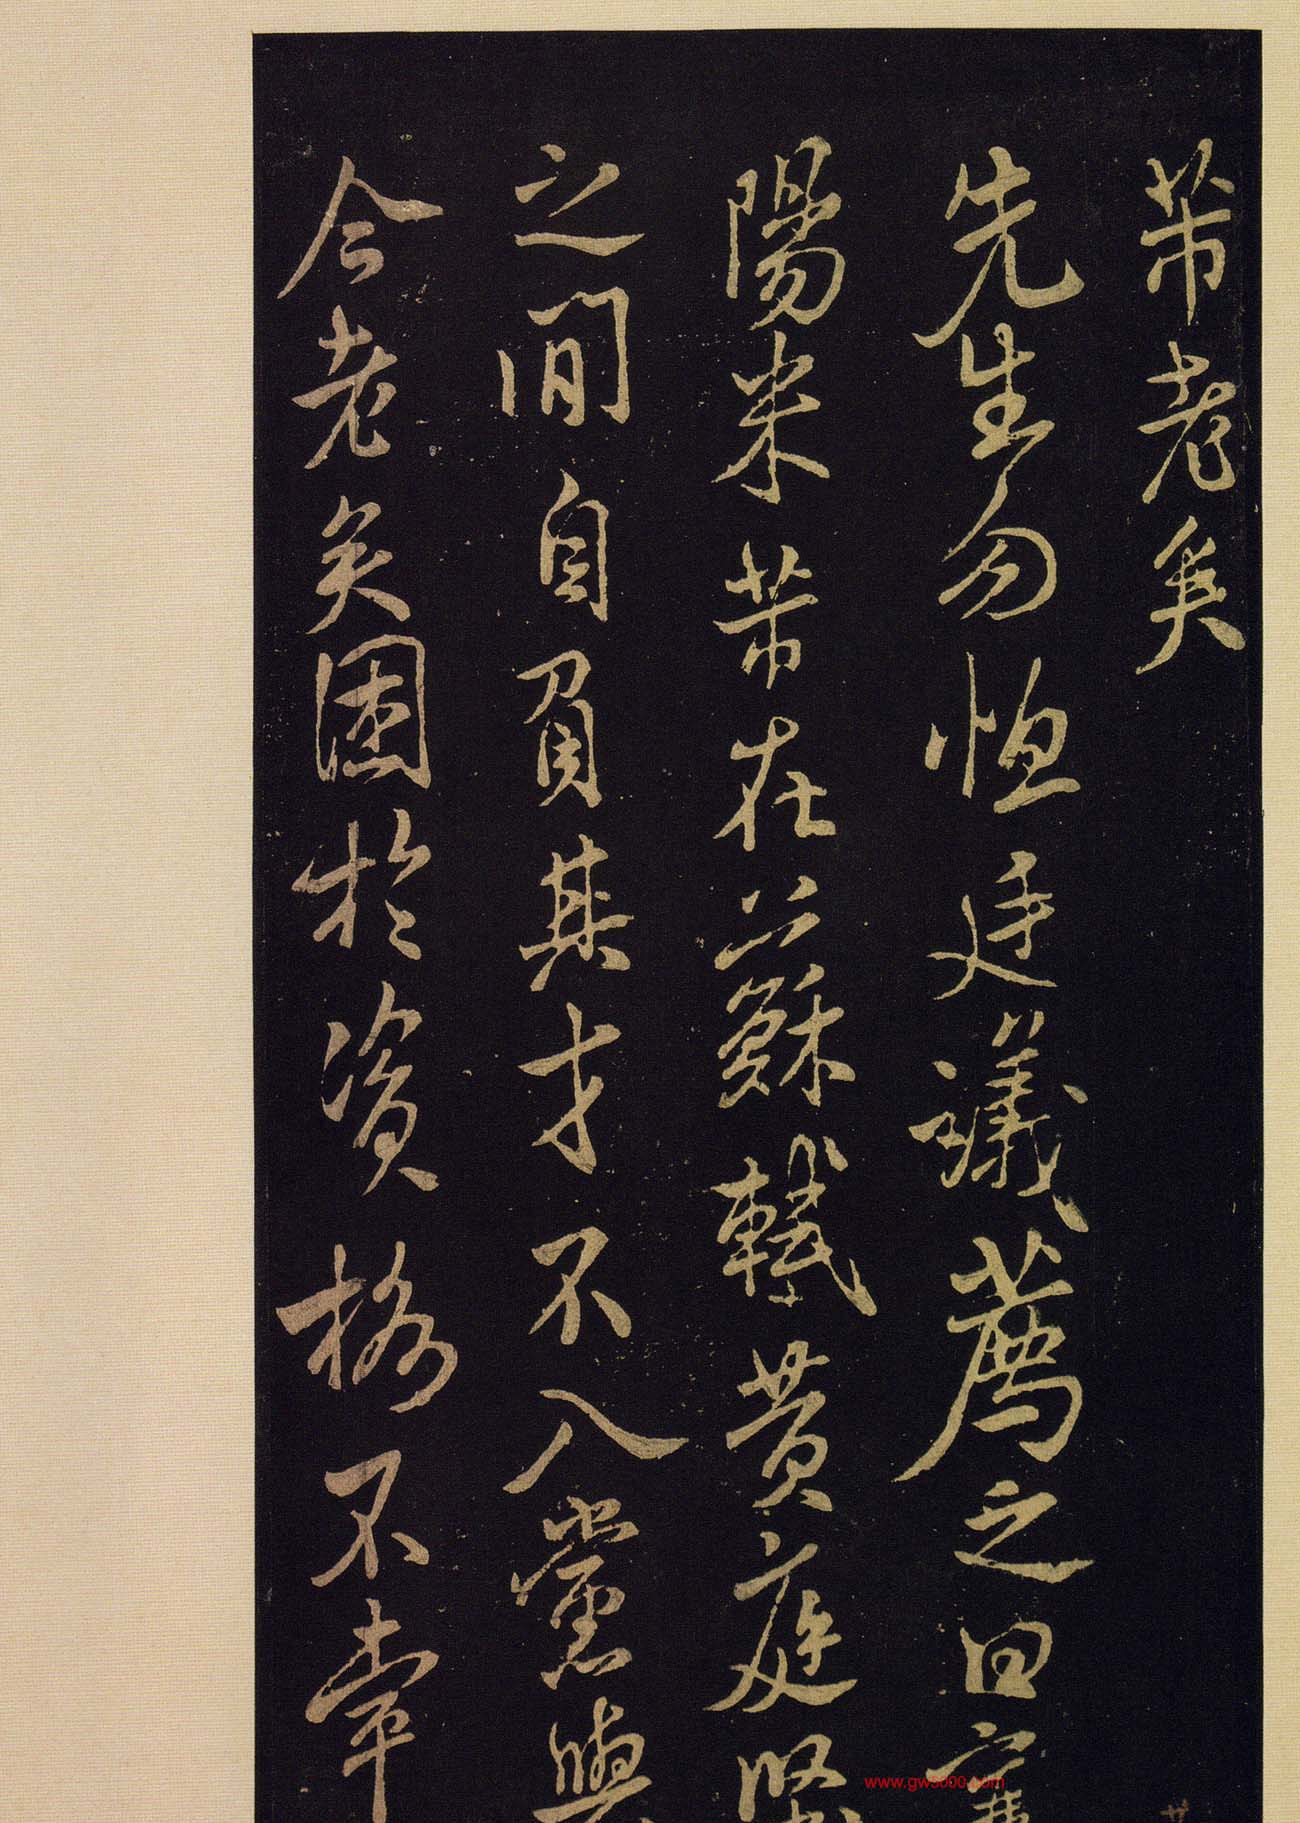 芾老矣
先生勿恤廷議薦之曰襄
陽米芾在蘇軾黃庭堅
之間自負其才不入黨與
今老矣困於資格不幸
www.gw5000.com